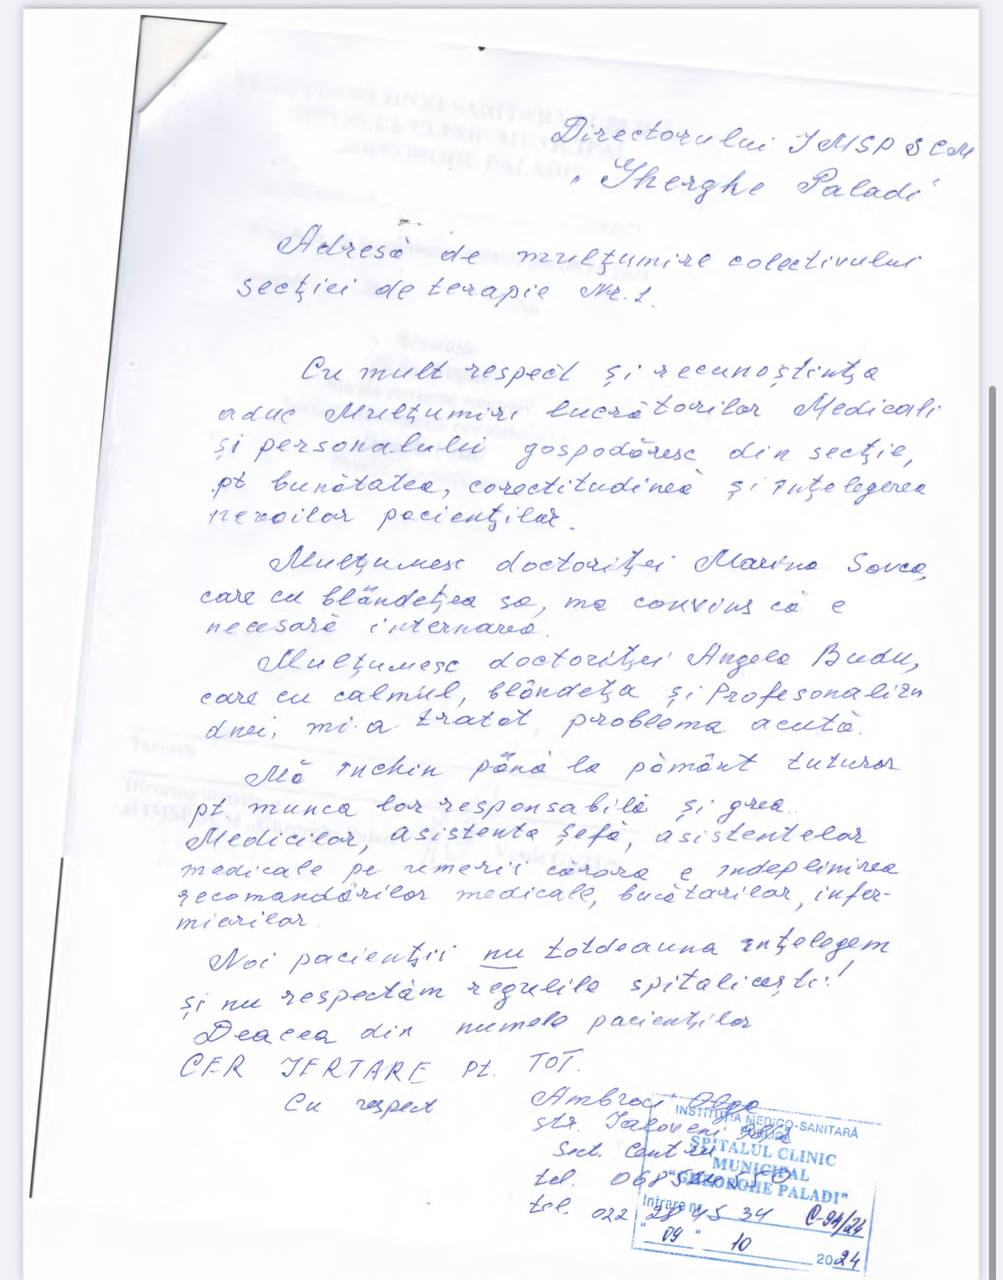 Directorului IMSP SCM
"Gherghe Paladi"
Adresă de mulțumire colectivului
secției de terapie Nr. 1.
Cu mult respect și recunoștința
aduc Mulțumiri lucrătorilor Medicali
și personalului gospodăresc din secție,
pt bunătatea, corectitudinea și înțelegerea
nevoilor pacienților.
Mulțumesc doctoriței Marina Sovca,
care cu blândețea sa, ma convins că e
necesară internarea.
Mulțumesc doctoriței Angela Budu,
care cu calmul, blândeța și Profesonalizm
dnei, mi-a tratat problema acută.
Mă închin până la pământ tuturor
pt munca lor responsabilă și grea.
Medicilor, asistenta șefă, asistentelor
medicale pe umerii cărora e îndeplinirea
recomandărilor medicale, bucătarilor, infer-
mierilor.
Noi pacienții nu totdeauna înțelegem
și nu respectăm regulile spitalicești!
Deacea din numele pacienților
CER IERTARE Pt. TOT.
Cu respect
Olga
str. Ialoveni
Sect. Centru
tel.
tel. 022 28 45 34
INSTITUȚIA MEDICO-SANITARĂ
PUBLICĂ
SPITALUL CLINIC
MUNICIPAL
"GHEORGHE PALADI"
Intrare nr. C-94/24
"09" 10 2024